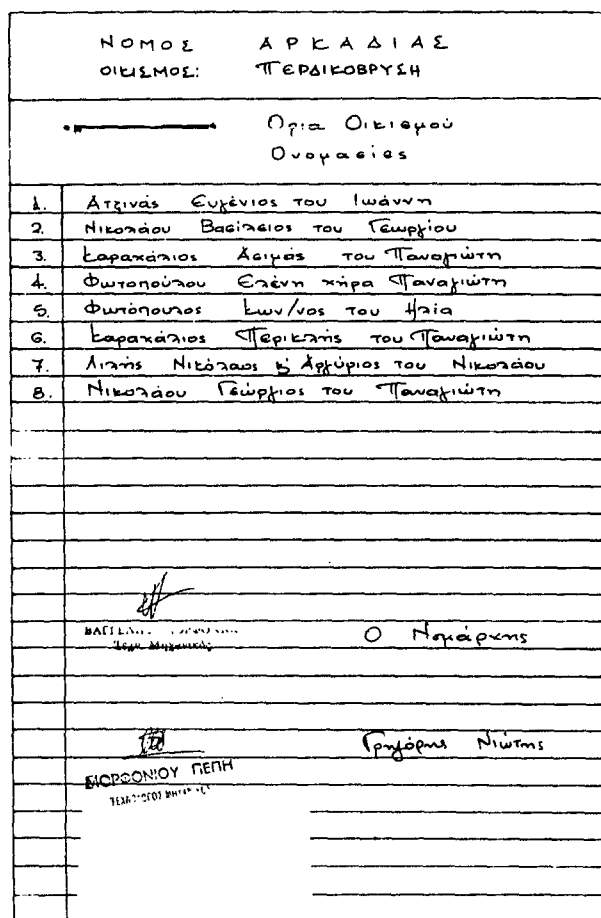 ΝΟΜΟΣ ΑΡΚΑΔΙΑΣ
ΟΙΚΙΣΜΟΣ: ΠΕΡΔΙΚΟΒΡΥΣΗ
Ορια Οικισμού
Ονομασίες
1. Ατζινάς Ευγένιος του Ιωάννη
2. Νικολάου Βασίλειος του Γεωργίου
3. Καραχάλιος Ασιμάς του Παναγιώτη
4. Φωτοπούλου Ελένη χήρα Παναγιώτη
5. Φωτόπουλος Κων/νος του Ηλία
6. Καραχάλιος Περικλής του Παναγιώτη
7. Λιλής Νικόλαος κ' Αργύριος του Νικολάου
8. Νικολάου Γεώργιος του Παναγιώτη
Ο Νομάρχης
Γρηγόρης Νιώτης
ΠΕΠΗ